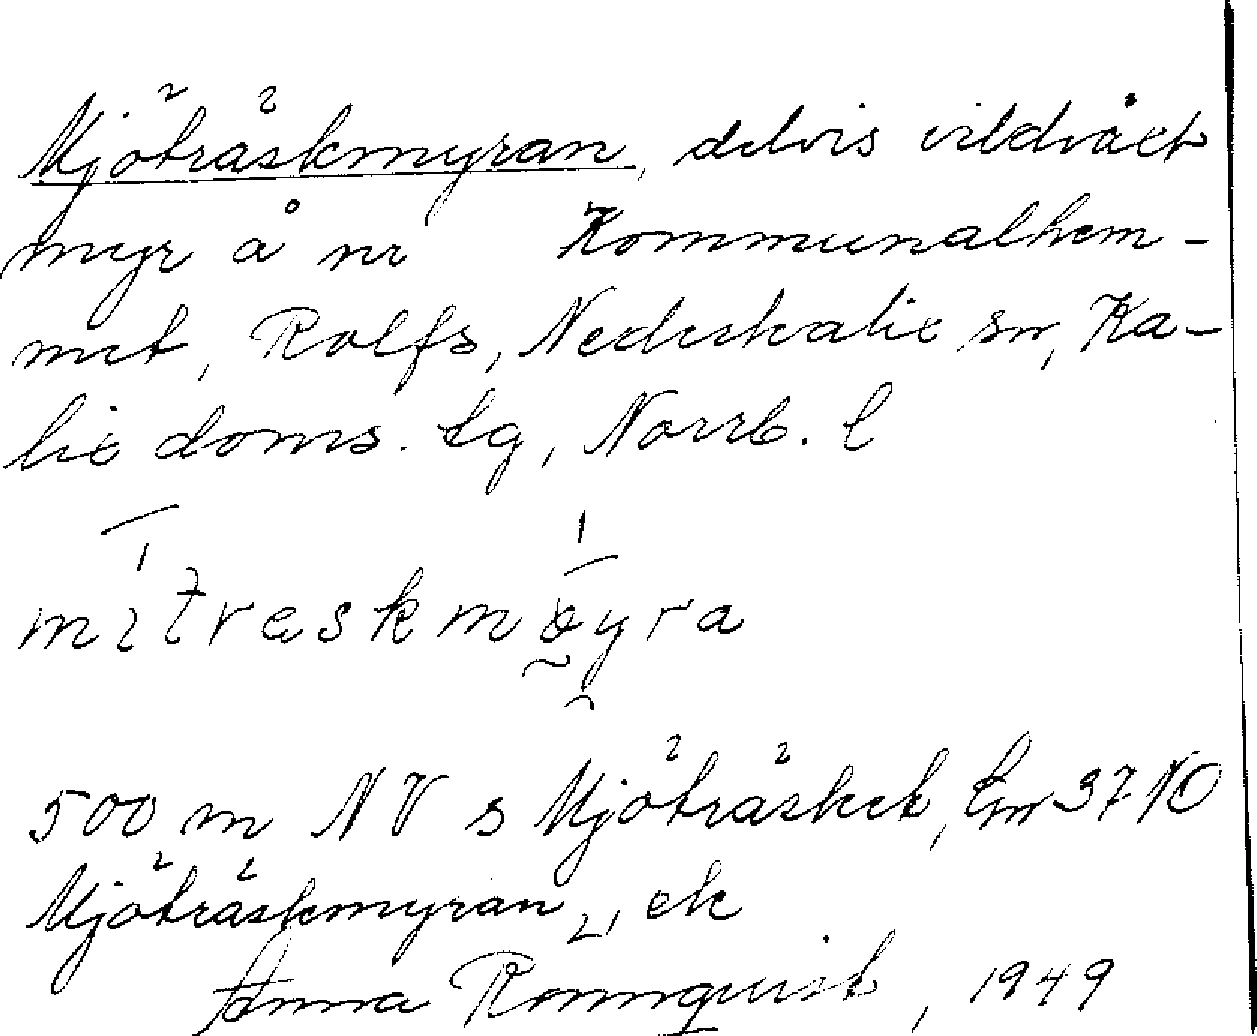 Mjöträskmyran, delvis vildvået
myr å nr Kommunalhem-
met, Rolfs, Nederkalix sn, Ka-
lix doms. lg, Norrb. l
mitreskmøyra
500 m NV s Mjöträsket, Em 37 NO
Mjöträskmyran, ek
Anna Ronnquist, 1949